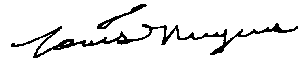 Louis Nuyens